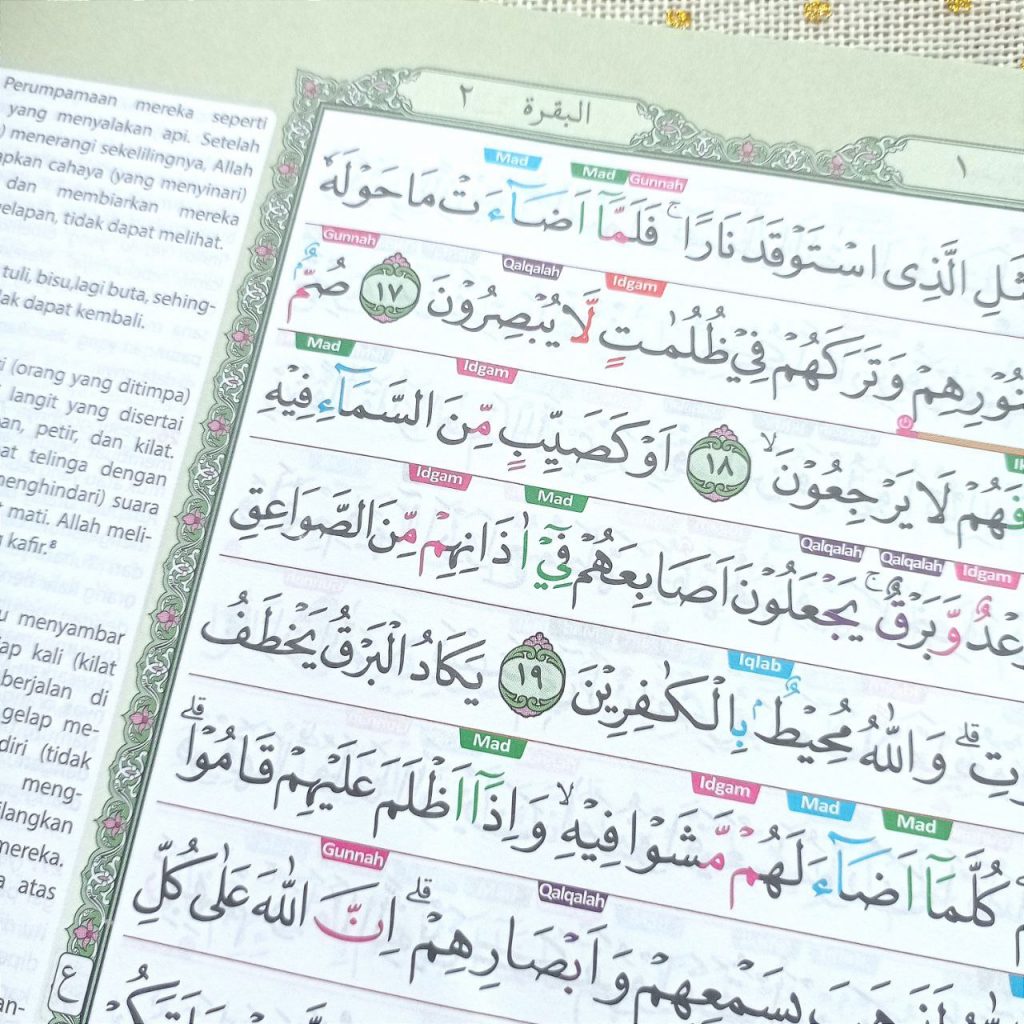 البقرة ٢
١
Perumpamaan mereka seperti
yang menyalakan api. Setelah
menerangi sekelilingnya, Allah
cahaya (yang menyinari)
dan membiarkan mereka
tidak dapat melihat.
tuli, bisu, lagi buta, sehing-
dapat kembali.
(orang yang ditimpa)
langit yang disertai
petir, dan kilat.
telinga dengan
suara
mati. Allah meli-
kafir.⁸
menyambar
kali (kilat
berjalan di
gelap me-
diri (tidak
meng-
mereka.
atas
Mad Mad Gunnah
الَّذِى اسْتَوْقَدَ نَارًا ۚ فَلَمَّآ اَضَاۤءَتْ مَا حَوْلَهٗ
Gunnah Qalqalah Idgam
وَتَرَكَهُمْ فِيْ ظُلُمٰتٍ لَّا يُبْصِرُوْنَ ١٧ صُمٌّ ۢ
Mad Idgam
فَهُمْ لَا يَرْجِعُوْنَ ۙ ١٨ اَوْ كَصَيِّبٍ مِّنَ السَّمَاۤءِ فِيْهِ
Idgam Mad Qalqalah Qalqalah Idgam
وَّبَرْقٌ ۚ يَجْعَلُوْنَ اَصَابِعَهُمْ فِيْٓ اٰذَانِهِمْ مِّنَ الصَّوَاعِقِ
Iqlab
ۗ وَاللّٰهُ مُحِيْطٌ ۢ بِالْكٰفِرِيْنَ ١٩ يَكَادُ الْبَرْقُ يَخْطَفُ
Mad Idgam Mad Mad
كُلَّمَآ اَضَاۤءَ لَهُمْ مَّشَوْا فِيْهِ ۙ وَاِذَآ اَظْلَمَ عَلَيْهِمْ قَامُوْا ۗ
Gunnah Qalqalah
بِسَمْعِهِمْ وَاَبْصَارِهِمْ ۗ اِنَّ اللّٰهَ عَلٰى كُلِّ
ع